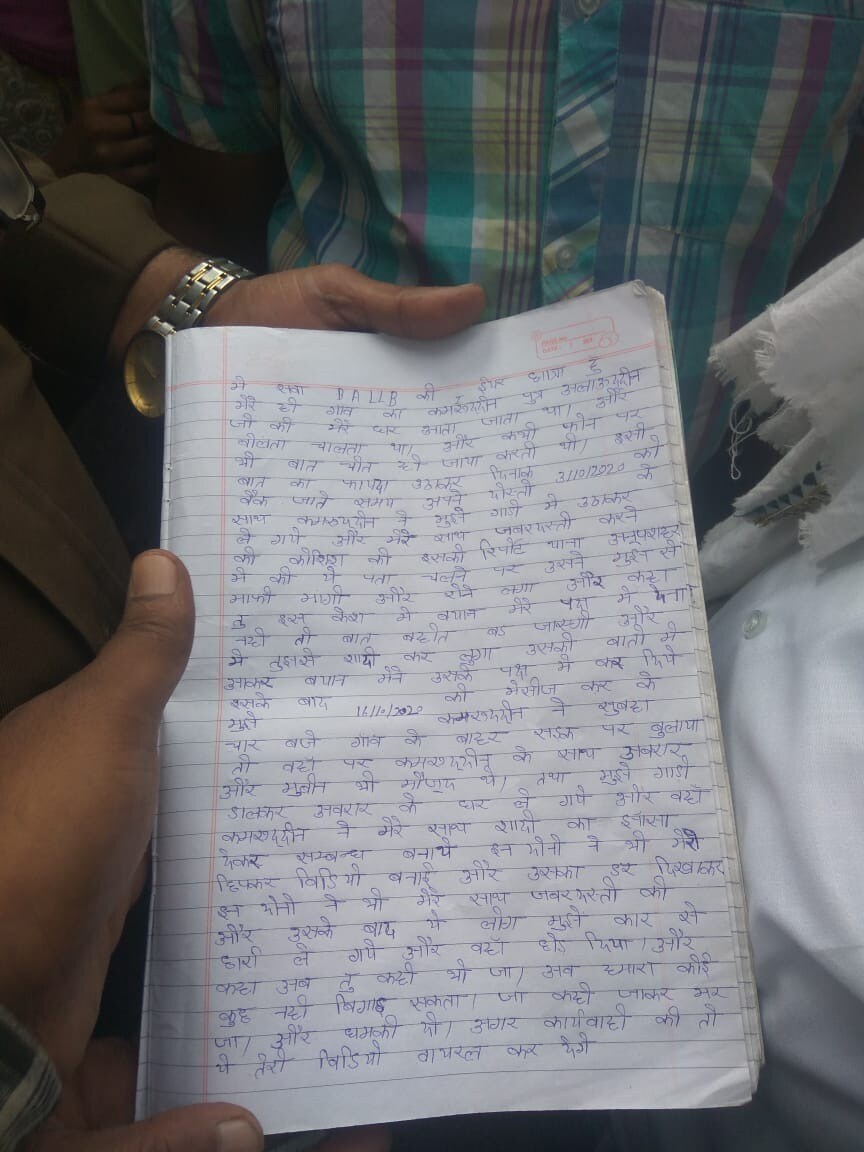 मे BALLB की छात्रा हु
मेरे ही गांव का कमरूददीन पुत्र अलाऊददीन
जो की मेरे घर आता जाता था। और
बोलता चालता था। और कभी फोन पर
भी बात चीत हो जाया करती थी। इसी
बात का फायदा उठाकर दिनांक 3/10/2020 को
बैंक जाते समय अपने दोस्तो के
साथ कमरूददीन ने मुझे गाडी मे उठाकर
ले गये और मेरे साथ जबरदस्ती करने
की कोशिश की इसकी रिर्पोट थाना अनूपशहर
मे की ये पता चलने पर उसने मुझ से
माफी मागी और रोने लगा और कहा
तु इस केश मे बयान मेरे पक्ष मे देना
नही तो बात बहोत बड जाएगी और
मे तुझसे शादी कर लुगा उसकी बातो मे
आकर बयान मेने उसके पक्ष मे कर दिये
इसके बाद 16/10/2020 को मेसीज कर के
मुझे कमरूददीन ने सुबहा
चार बजे गांव के बाहर सडक पर बुलाया
तो वहाँ पर कमरूददीन के साथ अबरार
और मुबीन भी मौजूद थे। तथा मुझे गाडी
डालकर अबरार के घर ले गये और वहाँ
कमरूददीन ने मेरे साथ शादी का
देकर सम्बन्ध बनाये इन दोनो ने भी मेरी
छिपकर विडियो बनाई और उसका डर दिखाकर
इन दोनो ने भी मेरे साथ जबरदस्ती की
और उसके बाद ये लोग मुझे कार से
ले गये और वहाँ छोड दिया। और
कहा अब तु कही भी जा। अब हमारा कोई
कुछ नही बिगाड सकता। जा कही जाकर मर
जा। और धमकी दी। अगर कार्यवाही की तो
ये तेरी विडियो वायरल कर देगे